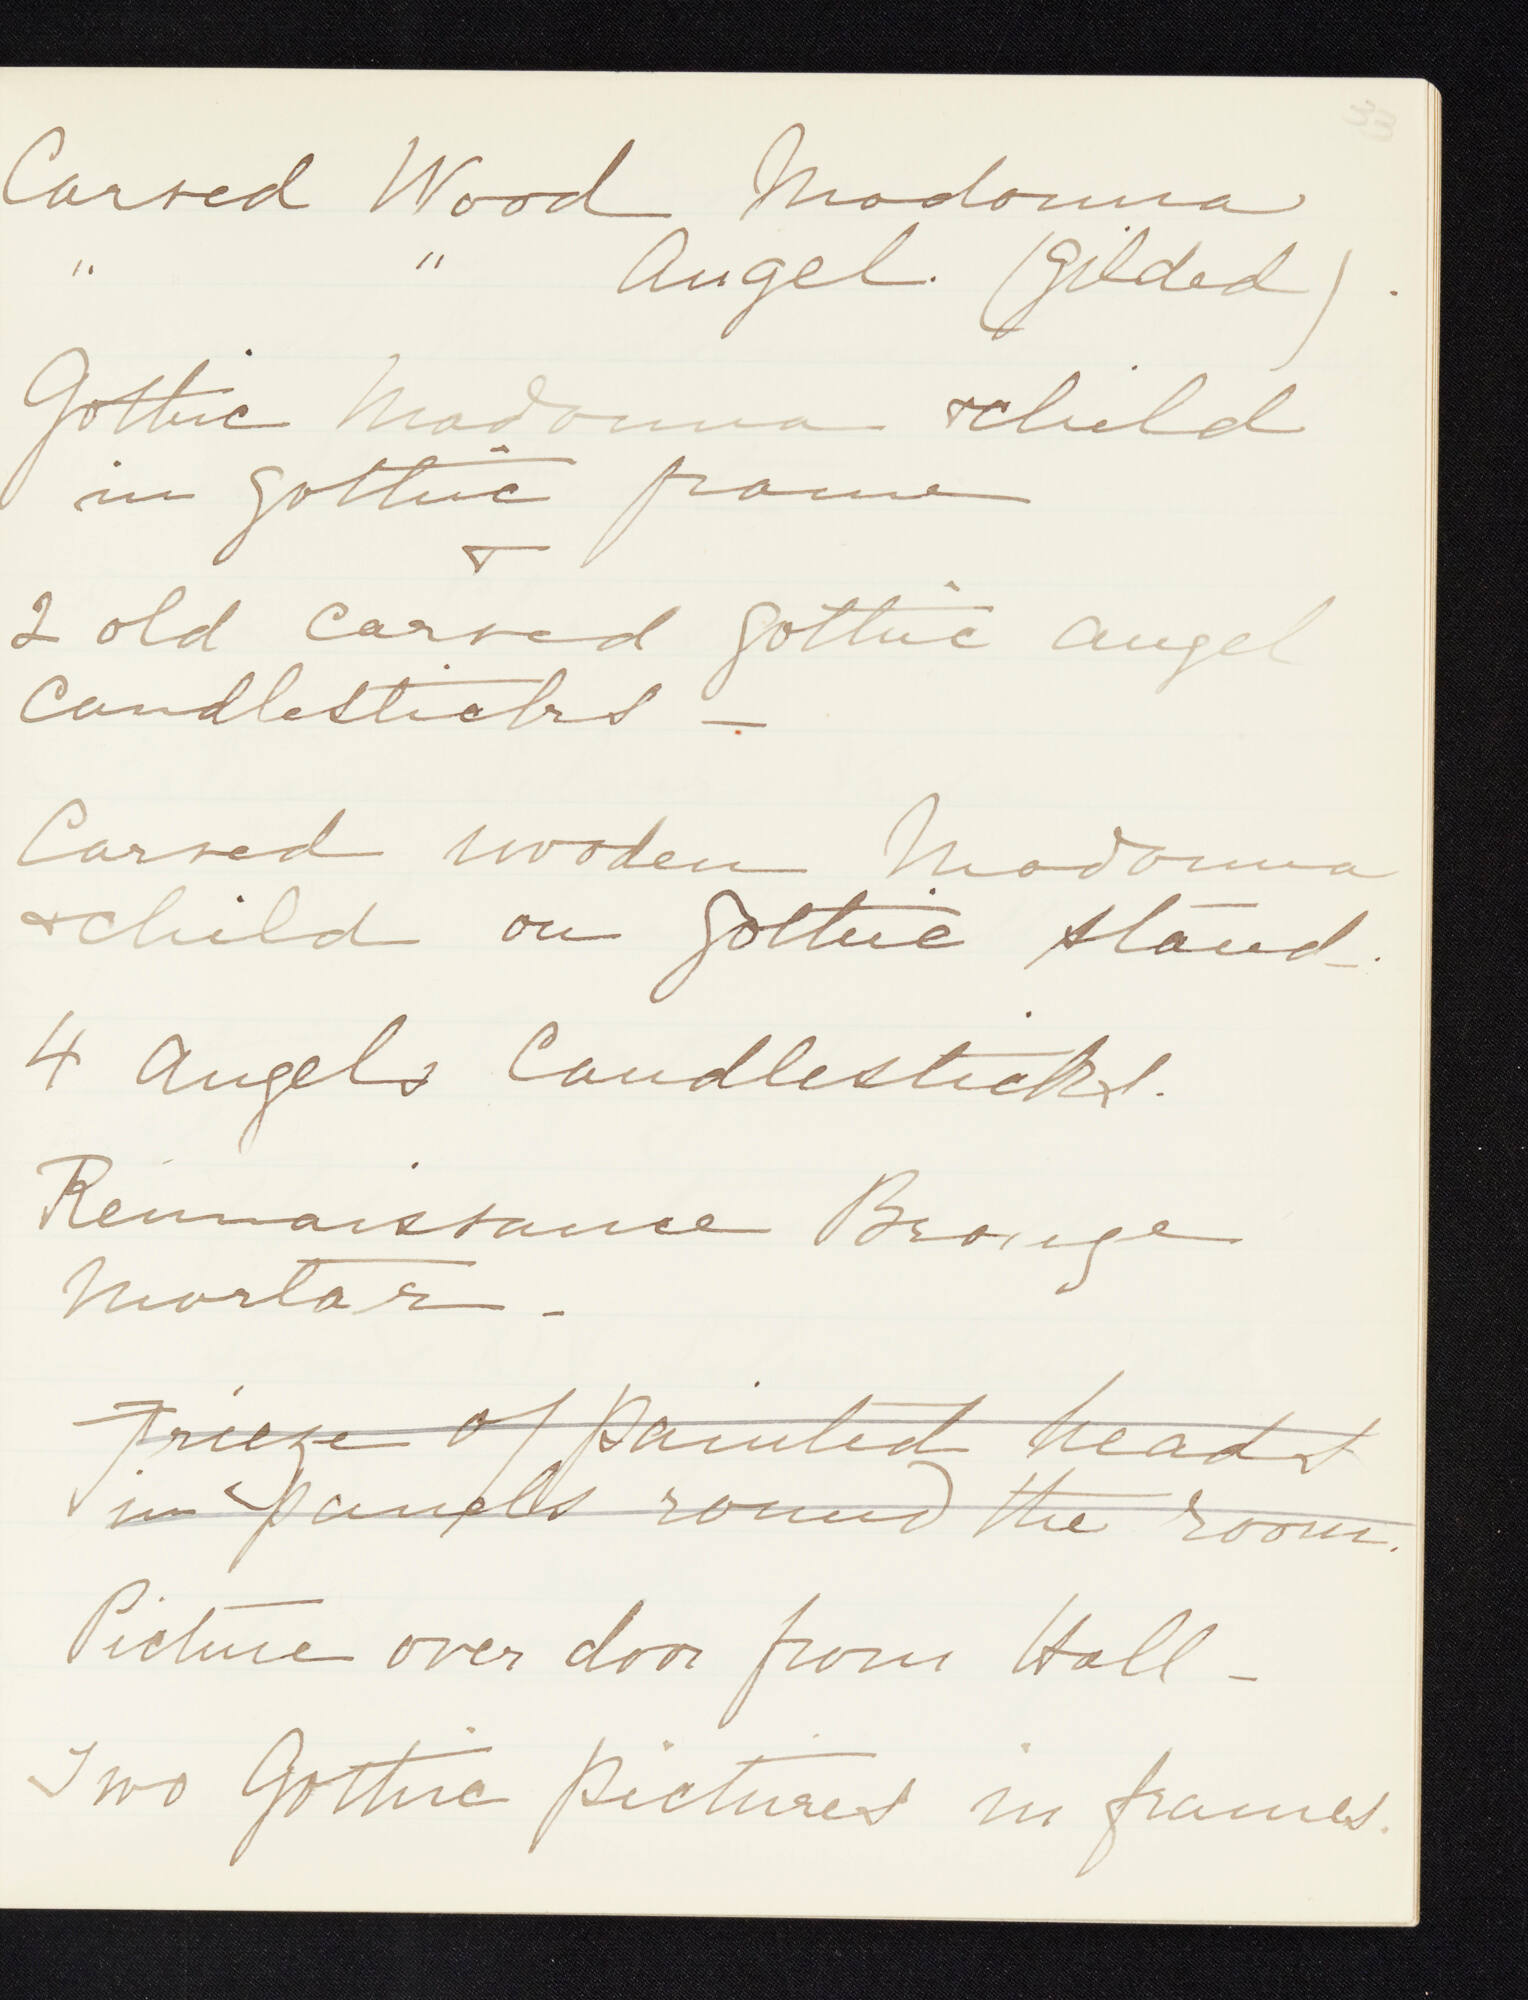 33
Carved Wood Madonna
" " Angel. (Gilded).
Gothic Madonna & child
in gothic frame
&
2 old carved gothic angel
candlesticks –
Carved wooden Madonna
& child on gothic stand.
4 Angels Candlesticks.
Rennaissance Bronze
Mortar –
Frieze of painted heads
in panels round the room.
Picture over door from Hall –
Two Gothic pictures in frames.